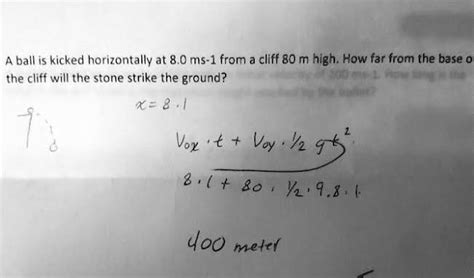 A ball is kicked horizontally at 8.0 ms-1 from a cliff 80 m high. How far from the base o
the cliff will the stone strike the ground?
x = 8 . 1
Vox · t + Voy · 1/2 gt²
8 . 1 + 80 . 1/2 . 9.8 . 1
400 meter